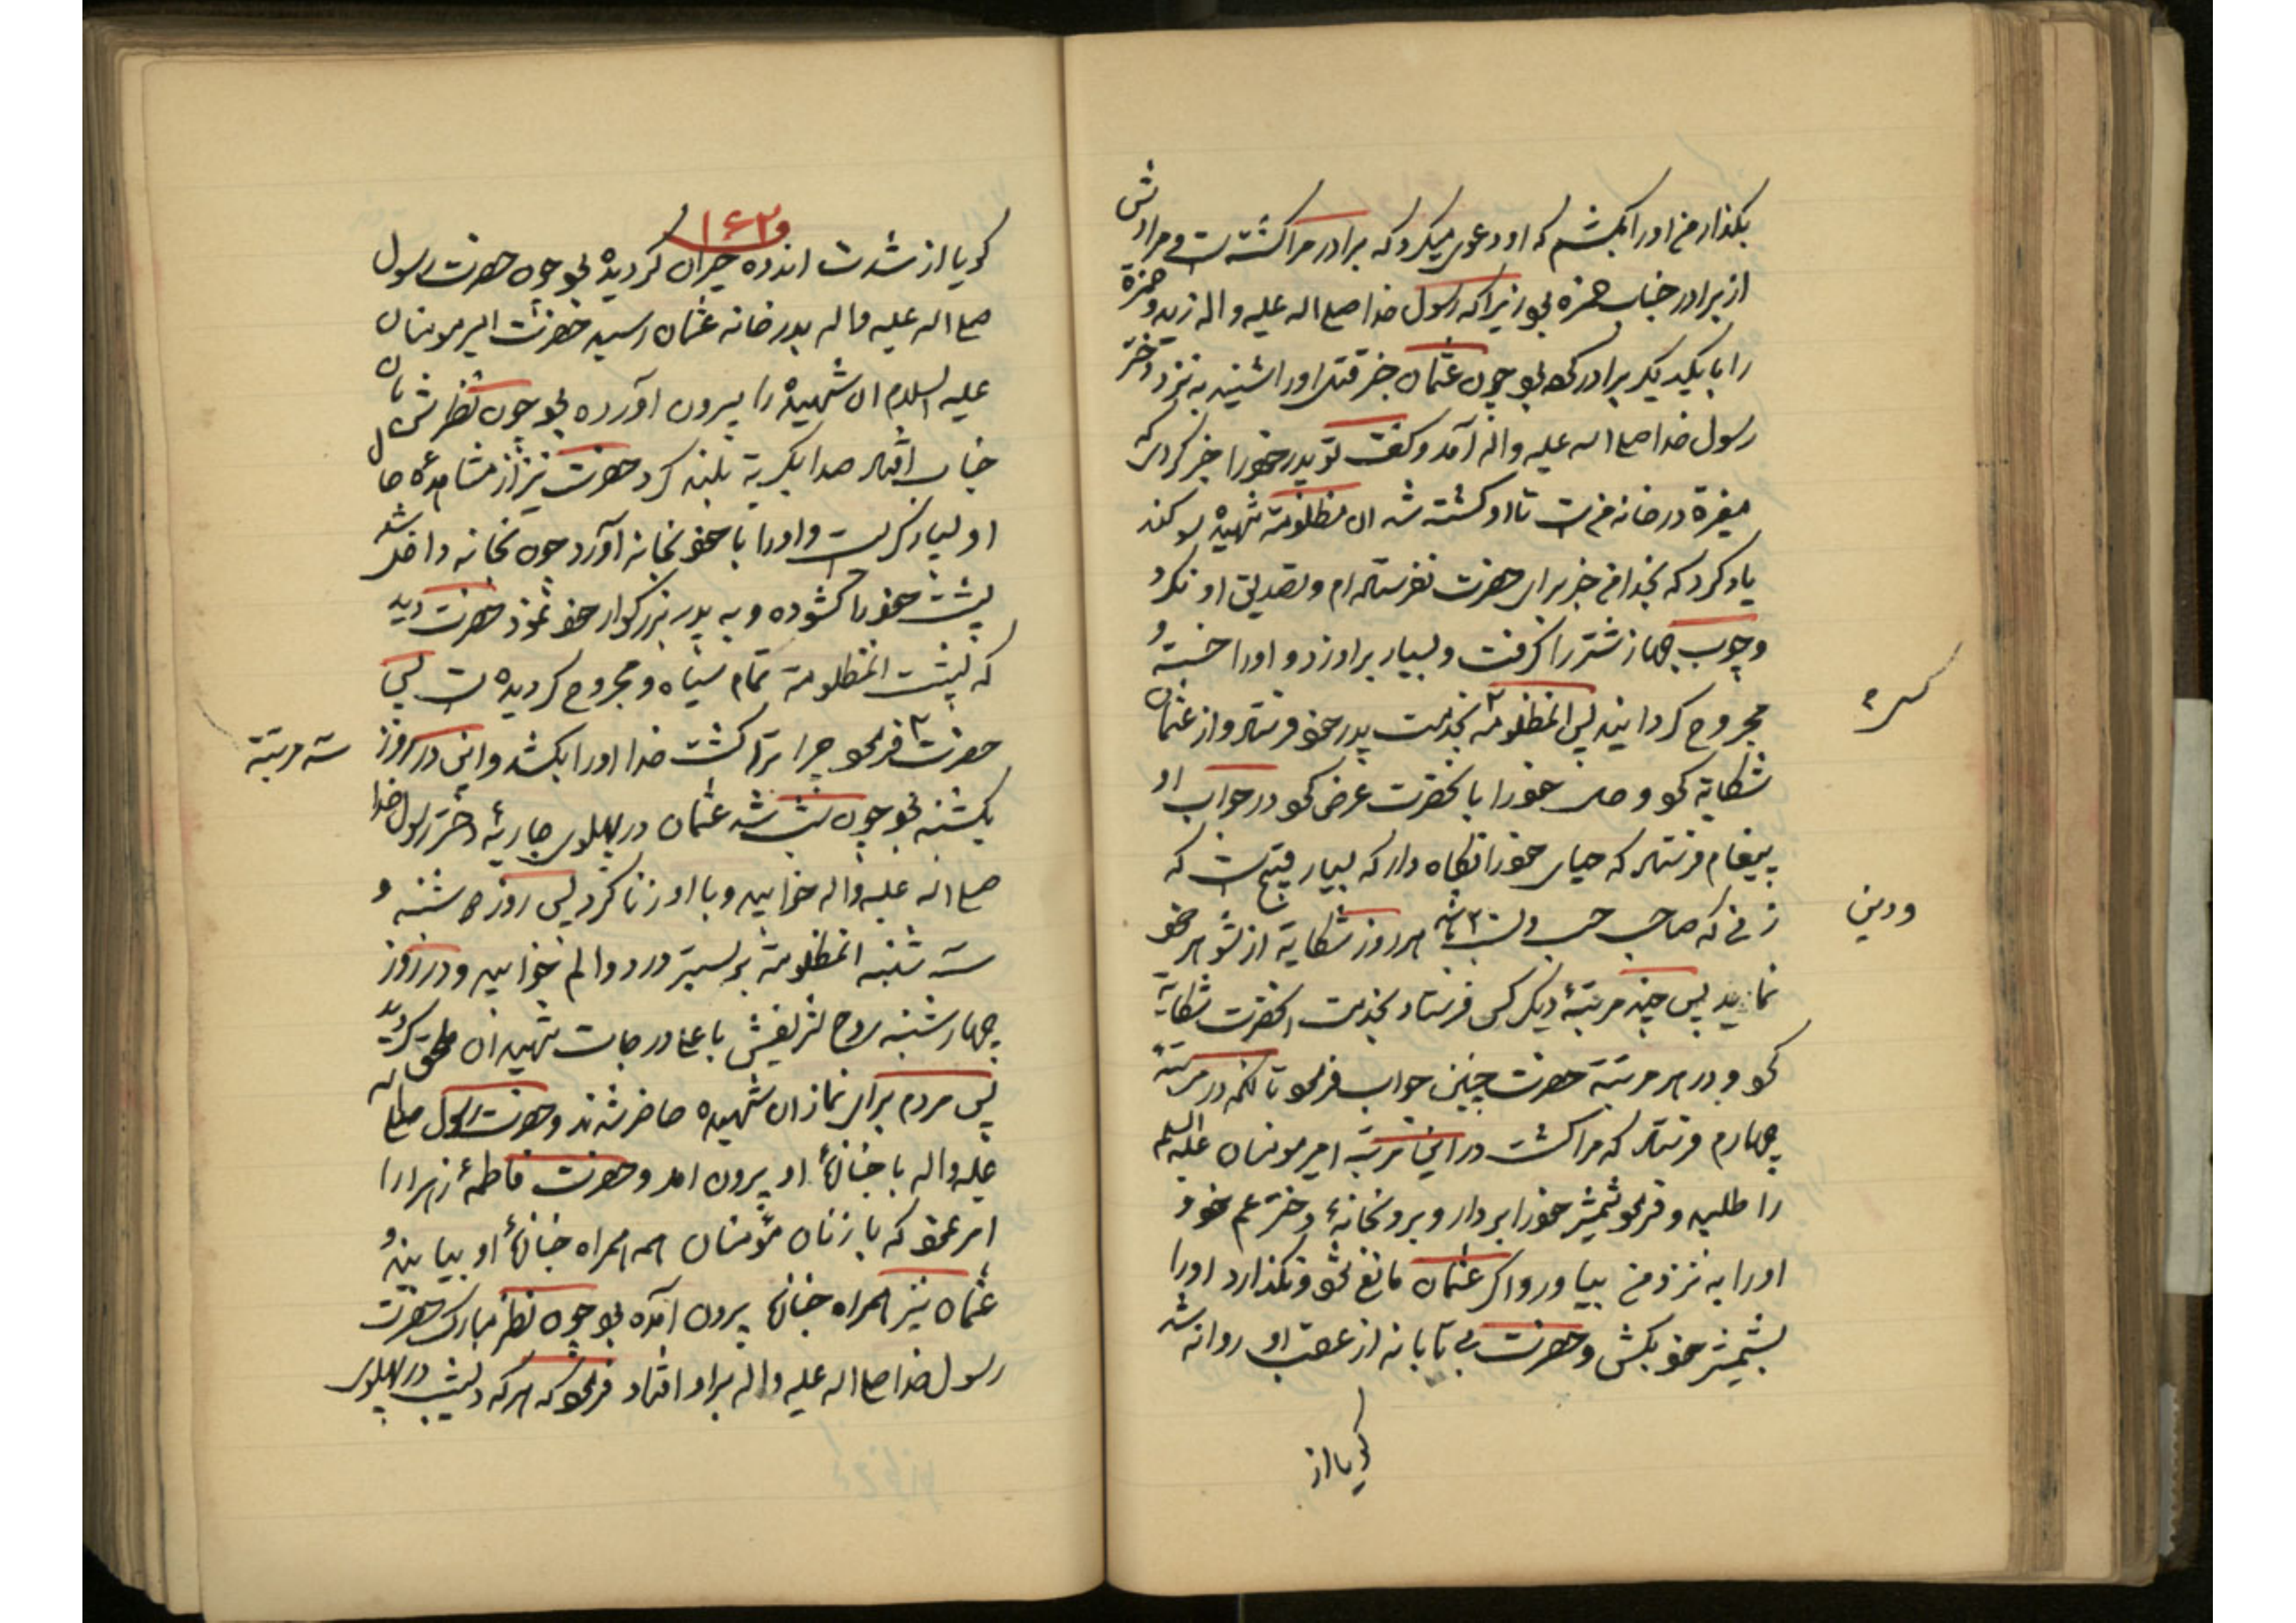 بکذار من اورا بکشم که او دعوی میکرد که برادر مرا کشته است و مرادش
از برادر جناب حمزه بود زیرا که رسول خدا صلی اله علیه و اله زید و حمزة
را با یکدیکر برادر کرده بود چون عثمان خبر قتل اورا شنید به نزد دختر
رسول خدا صلی اله علیه واله آمد و کفت تو پدر خود را خبر کردی که
مغیرة در خانه من است تا او کشته شد ان مظلومة شهیده سوکند
یاد کرد که بخدا من خبر برای حضرت نفرستاده ام و تصدیق او نکرد
و چوب جهاز شتر را کرفت و بسیار بر او زد و اورا خسته و
مجروح کردانید پس انمظلومة بخدمت پدر خود فرستاد و از عثمان
شکایة نمود و حال خود را بانحضرت عرض نمود در جواب او
پیغام فرستاد که حیای خود را نکاه دار که بسیار قبیح است که
زنی که صاحب حسب و نسب باشد هر روز شکایة از شوهر خود
ودین
نماید پس چند مرتبة دیکر کس فرستاد بخدمت انحضرت شکایة
نمود و در هر مرتبة حضرت چنین جواب فرمود تا انکه در مرتبة
چهارم فرستاد که مرا کشت در این مرتبة امیرمومنان علیه السلم
را طلبید و فرمود شمشیر خود را بردار و برو بخانهٔ دختر عم خود و
اورا به نزد من بیاور و اکر عثمان مانع شود و نکذارد اورا
بشمشیر خود بکش و حضرت بی تابانه از عقب او روانه شد
کویا از
۱۶۲
کویا از شدت اندوه حیران کردیده بود چون حضرت رسول
صلی اله علیه واله بدر خانه عثمان رسید حضرت امیر مومنان
علیه السلام ان شهیده را بیرون آورده بود چون نظرش بان
جناب افتاد صدا بکریة بلند کرد حضرت نیز از مشاهدهٔ حال
او بسیار کریست و اورا با خود بخانه آورد چون بخانه داخل شد
پشت خود را کشوده و به پدر بزرکوار خود نمود حضرت دید
که پشت انمظلومة تمام سیاه و مجروح کردیده است پس
حضرت فرمود چرا ترا کشت خدا اورا بکشد و این در روز
سه مرتبة
یکشنبه بود چون شب شد عثمان در پهلوی جاریهٔ دختر رسول خدا
صلی اله علیه واله خوابید و با او زنا کرد پس روز دوشنبه و
سه شنبه انمظلومة بر بستر درد و الم خوابید و در روز
چهارشنبه روح شریفش باعلا درجات شهیدان ملحق کردید
پس مردم برای نماز ان شهیده حاضر شدند و حضرت رسول صلی اله
علیه واله با جنازهٔ او بیرون امد و حضرت فاطمهٔ زهرا را
امر نمود که با زنان مؤمنان همه همراه جنازهٔ او بیایند و
عثمان نیز همراه جنازه بیرون آمده بود چون نظر مبارک حضرت
رسول خدا صلی اله علیه واله بر او افتاد فرمود که هر که دیشب در پهلوی